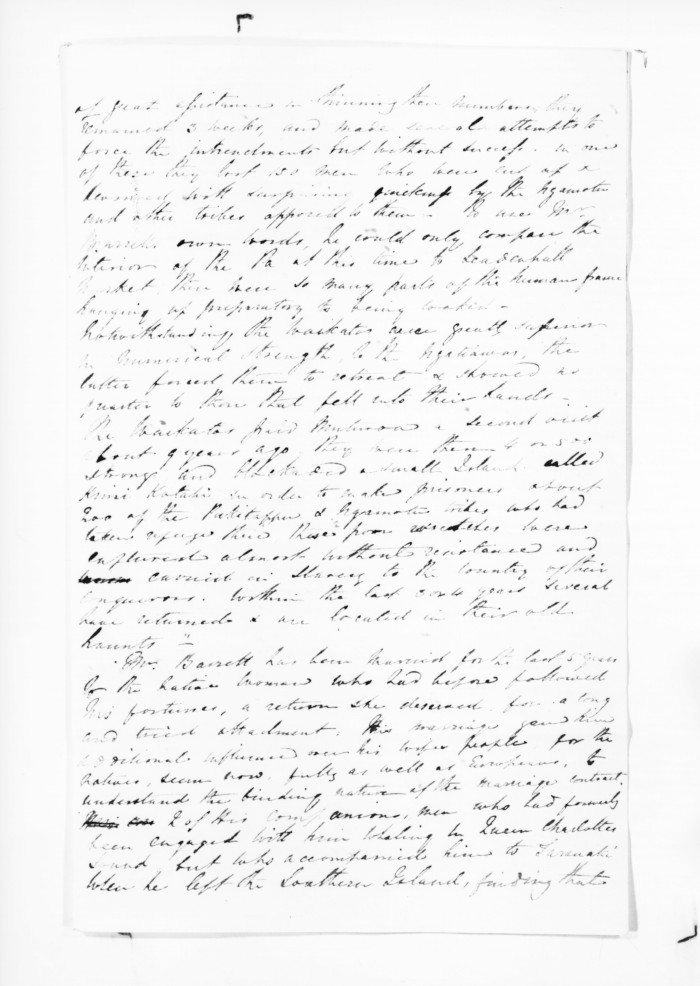 of great assistance in thinning their numbers, they
remained 3 weeks, and made several attempts to
force the intrenchments but without success. in one
of these they lost 150 men who were cut up &
devoured with surprising quickness by the Ngamotu
and other tribes opposed to them – To use Mr
Barretts own words, he could only compare the
interior of the Pa at this time to Leadenhall
Market, there were so many parts of the human frame
hanging up preparatory to being cooked –
Notwithstanding the Waikatos were greatly superior
in numerical strength to the Ngatiawas, the
latter forced them to retreat & showed no
quarter to those that fell into their hands –
The Waikatos paid a second visit
about 9 years ago, they were then 4 or 500
strong and blockaded a small Island called
in order to make prisoners about
200 of the & Ngamotu tribes who had
taken refuge there These poor wretches were
captured almost without resistance and
carried in slavery to the country of their
conquerors. Within the last 3 or 4 years several
have returned & are located in their old
haunts –
Mr. Barrett has been married for the last 5 years
to the native woman who had before followed
his fortunes, a return she deserved for a long
and tried attachment. His marriage gave him
additional influence over his wifes people for the
natives, seem now, fully as well as Europeans, to
understand the binding nature of the marriage contract.
2 of His companions, men who had formerly
been engaged with him Whaling in Queen Charlottes
Sound, but who accompanied him to Taranaki
when he left the Southern Island, finding that